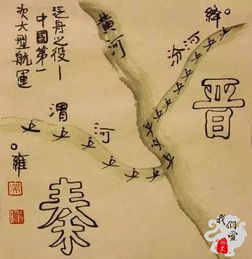 泛舟之役—
中國第一
次大型航運
黄河
汾河
絳
晉
渭河
雍
秦
我們愛